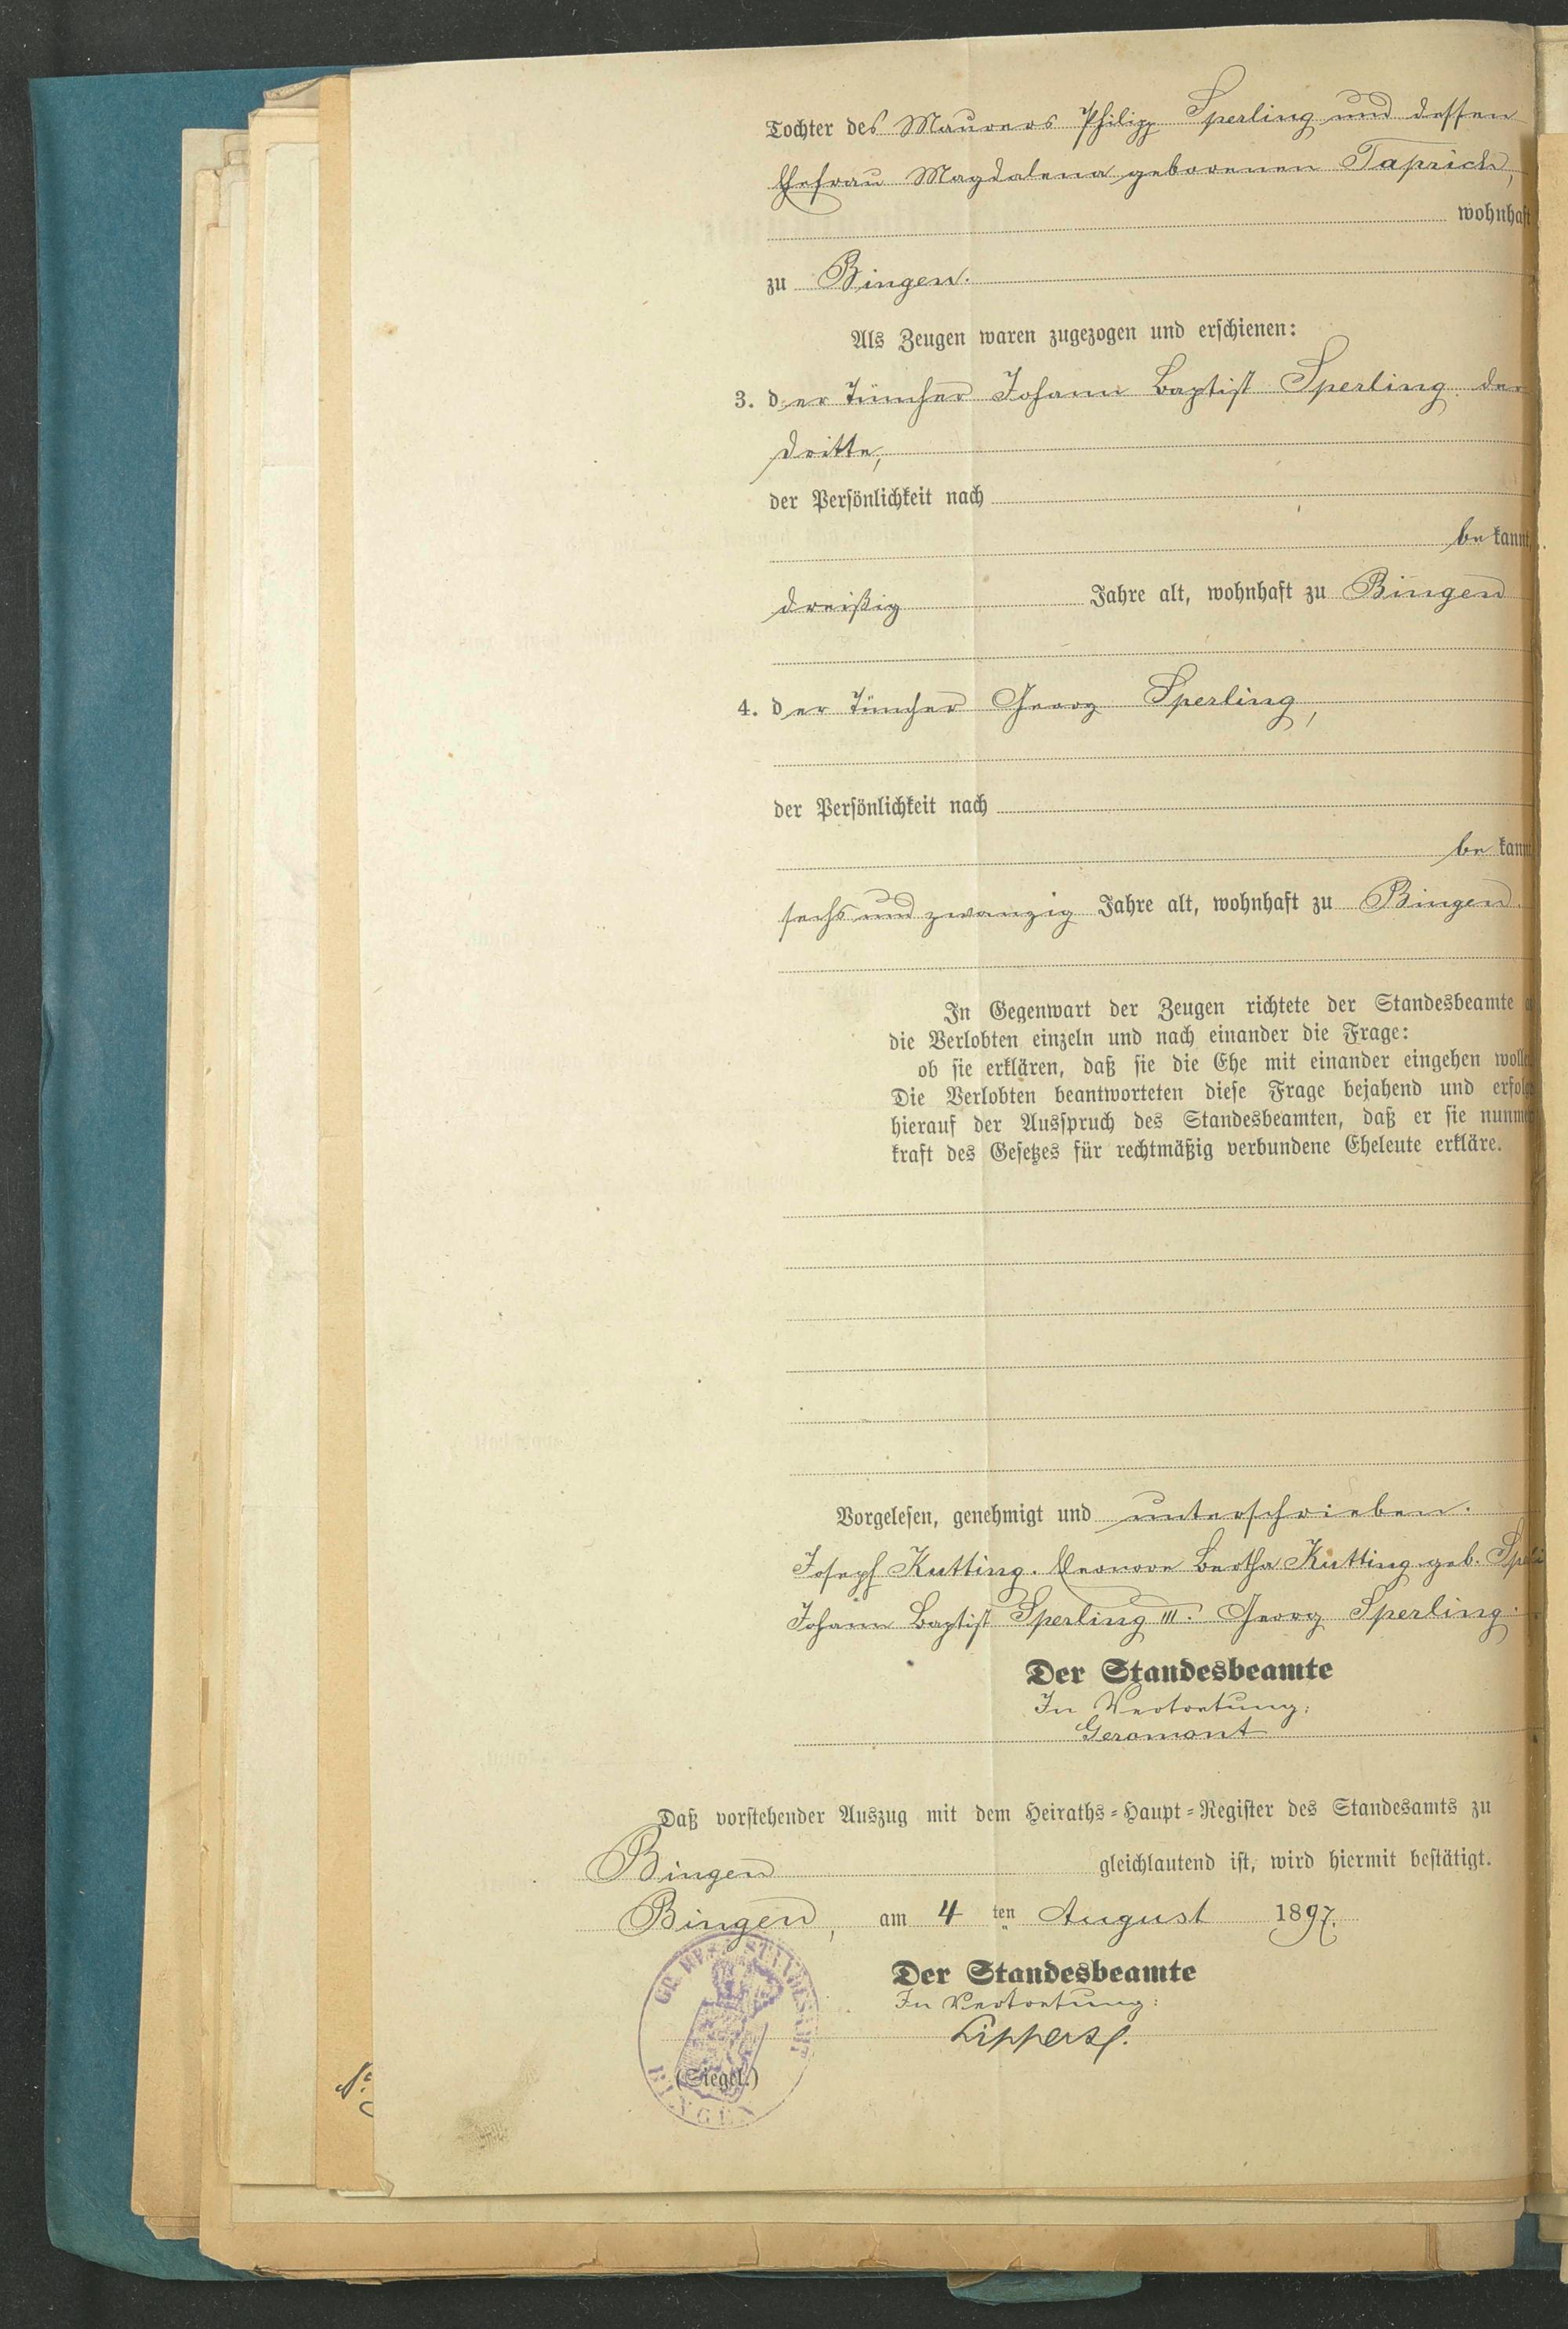 Tochter des Maurers Philipp Sperling und dessen
Ehefrau Magdalena geborenen Taprich,
wohnhaft
zu Bingen.
Als Zeugen waren zugezogen und erschienen:
3. der Tüncher Johann Baptist Sperling der
dritte,
der Persönlichkeit nach
be kannt,
dreißig Jahre alt, wohnhaft zu Bingen
4. der Tüncher Georg Sperling,
der Persönlichkeit nach
be kann
sechs und zwanzig Jahre alt, wohnhaft zu Bingen.
In Gegenwart der Zeugen richtete der Standesbeamte
die Verlobten einzeln und nach einander die Frage:
ob sie erklären, daß sie die Ehe mit einander eingehen wolle
Die Verlobten beantworteten diese Frage bejahend und erfol
hierauf der Ausspruch des Standesbeamten, daß er sie nunm
kraft des Gesetzes für rechtmäßig verbundene Eheleute erkläre.
Vorgelesen, genehmigt und unterschrieben.
Joseph Kutting. Eleonore Bertha Kutting geb. Sperli
Johann Baptist Sperling III. Georg Sperling.
Der Standesbeamte
In Vertretung:
Geromont
Daß vorstehender Auszug mit dem Heiraths-Haupt-Register des Standesamts zu
Bingen gleichlautend ist, wird hiermit bestätigt.
Bingen, am 4 ten August 1897.
Der Standesbeamte
In Vertretung:
(Siegel.)
BINGEN